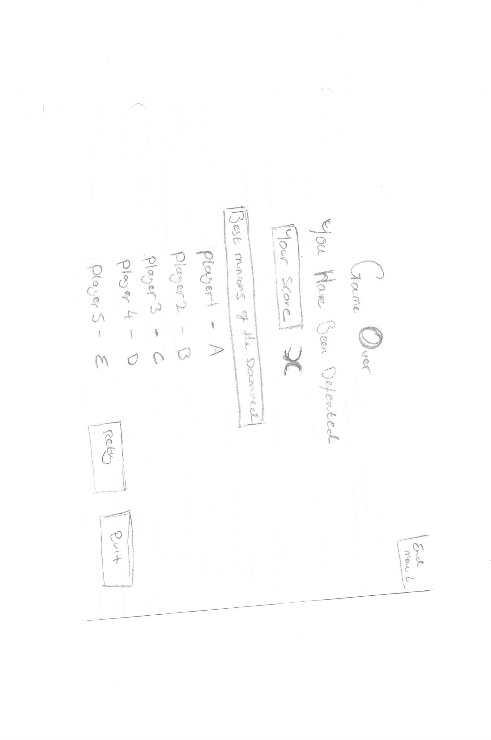 End
Game Over
You Have Been Defeated
Your Score X
Best minions of the Damned
Player 1 - A
Player 2 - B
Player 3 - C
Player 4 - D
Player 5 - E
Retry
Quit